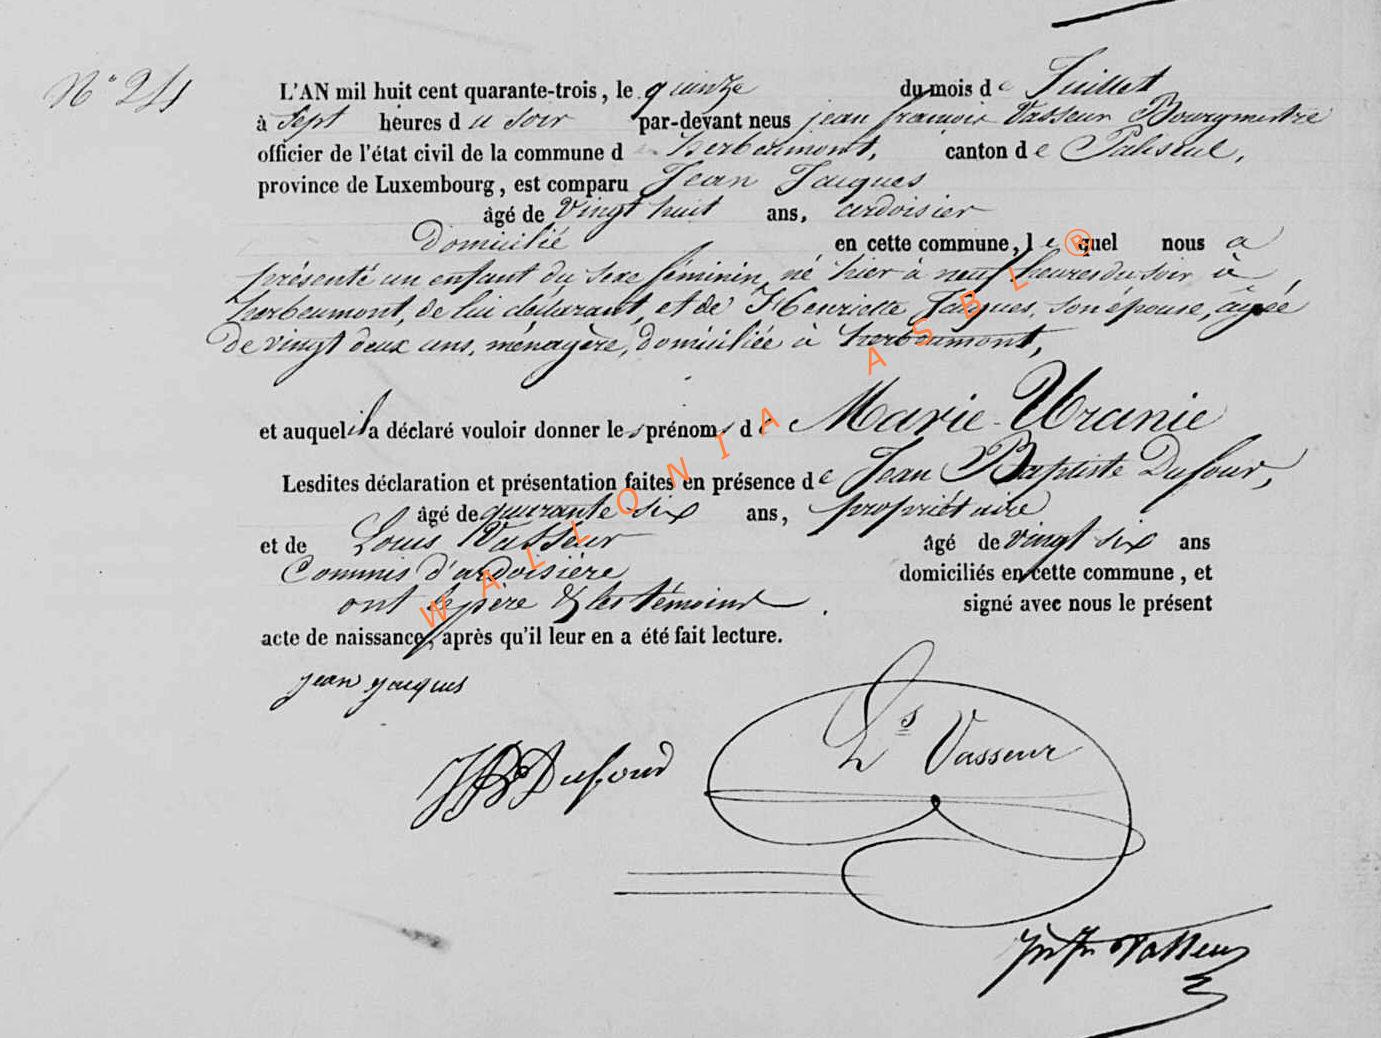 N° 24
L'AN mil huit cent quarante-trois, le quinze du mois de Juillet
à Sept heures du soir par-devant nous jean françois Vasseur Bourgmestre
officier de l'état civil de la commune d herbeumont, canton de Paliseul,
province de Luxembourg, est comparu Jean Jacques
âgé de vingt huit ans, ardoisier
Domicilié en cette commune, lequel nous a
présenté un enfant du sexe féminin, né hier à neuf heures du soir, à
herbeumont, de lui déclarant, et de Henriette Jacques, son épouse, âgée
de vingt deux ans, ménagère, domiciliée à herbeumont,
et auquel il a déclaré vouloir donner les prénoms de Marie-Uranie
Lesdites déclaration et présentation faites en présence de Jean Baptiste Dufour,
âgé de quarante six ans, propriétaire
et de Louis Vasseur âgé de vingt six ans
Commis d'ardoisière domiciliés en cette commune, et
ont le père & les témoins signé avec nous le présent
acte de naissance, après qu'il leur en a été fait lecture.
jean jacques
JB Dufour
Ls Vasseur
Jn Fs Vasseur
WALLONIA ASBL ®